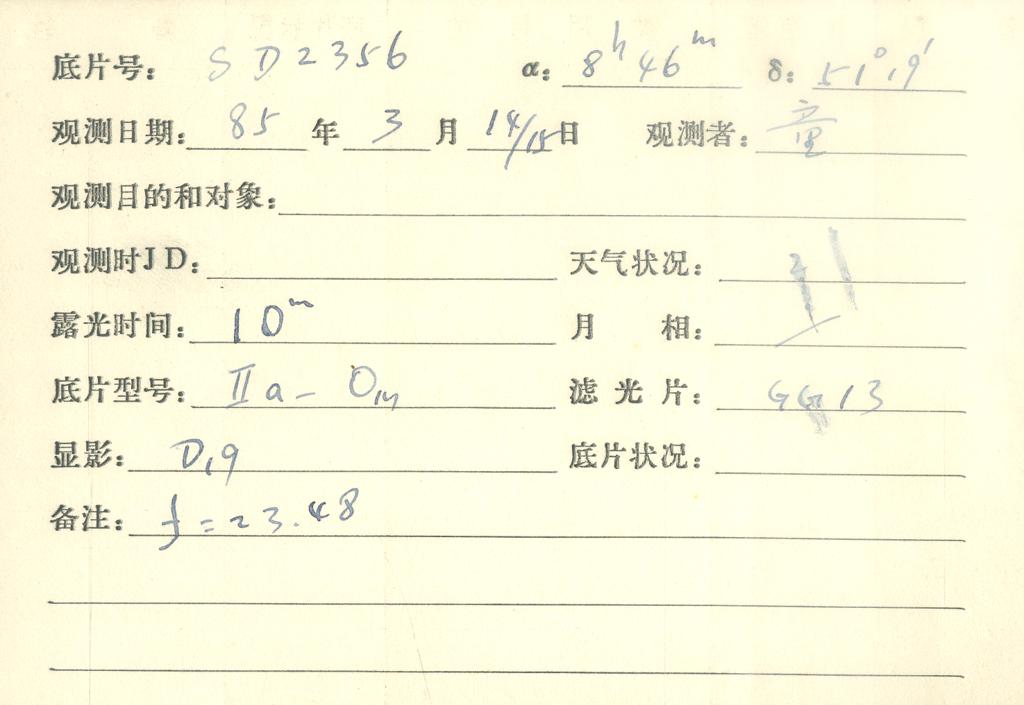 底片号: SD2356 α: 8ʰ46ᵐ δ: 51°19′
观测日期: 85 年 3 月 14/15 日 观测者: 童
观测目的和对象:
观测时JD: 天气状况:
露光时间: 10ᵐ 月 相:
底片型号: IIa-O 滤光片: GG13
显影: D19 底片状况:
备注: f=23.48